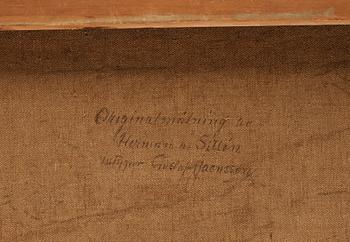 Originalmålning av
Herman af Sillén
intygar Gustaf